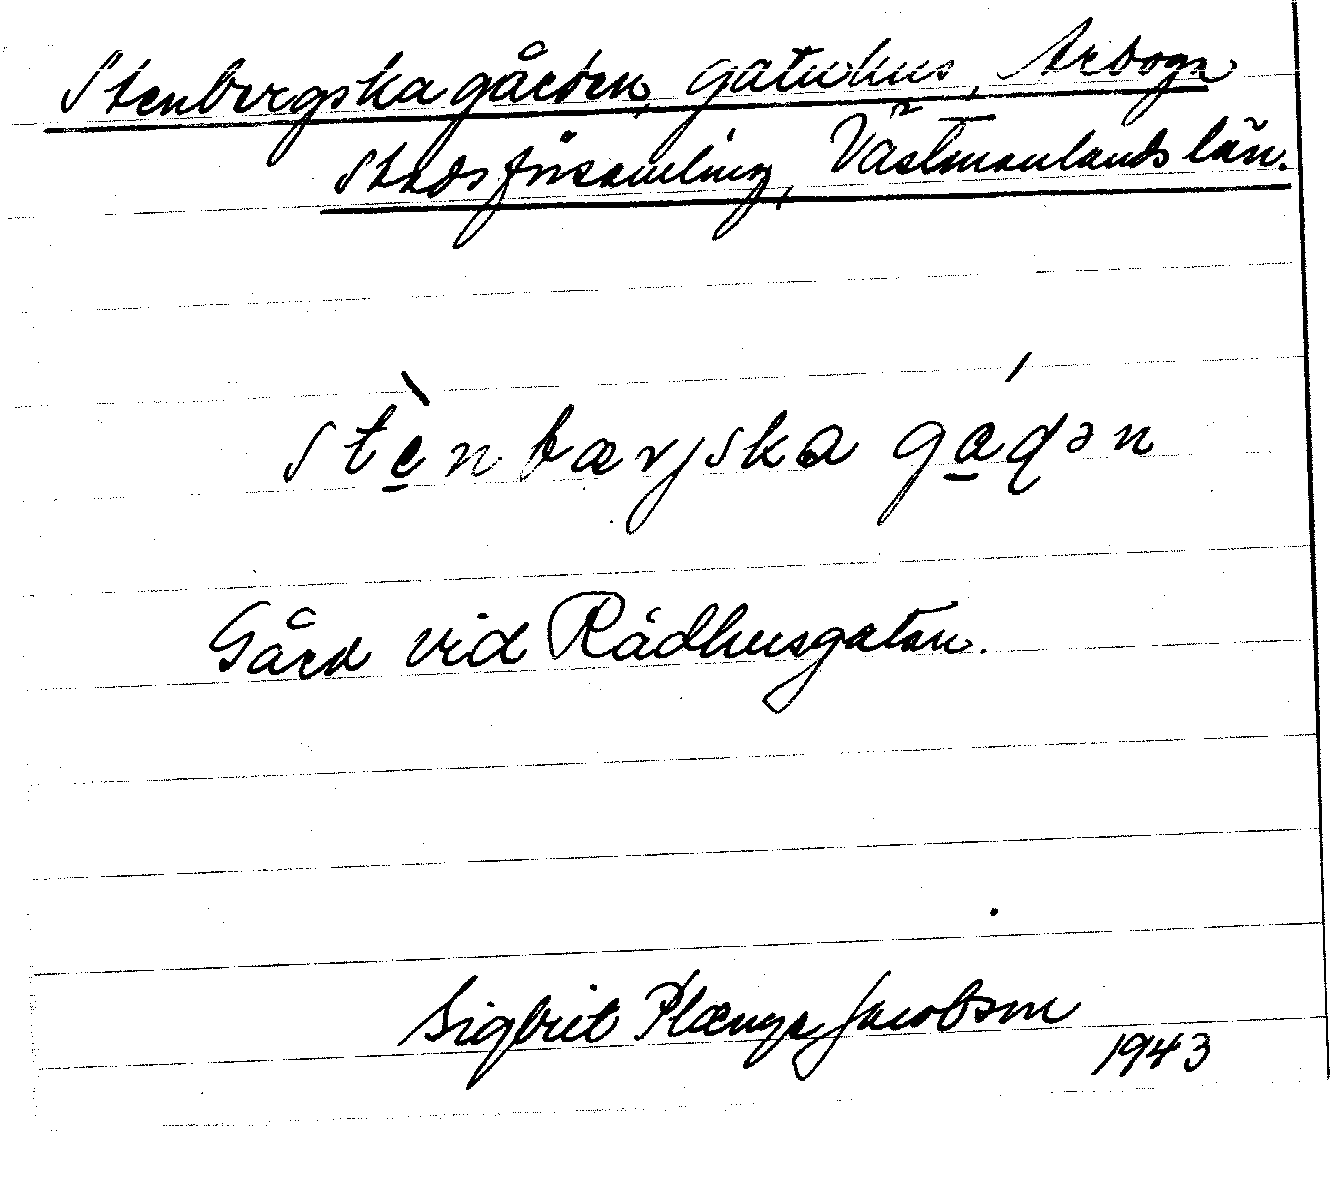 Stenbergska gården, gatuhus, Arboga
Stadsförsamling, Västmanlands län.
stè̠nbærjska gá̠ɖən
Gård vid Rådhusgatan.
Sigbrit Plænge Jacobson
1943